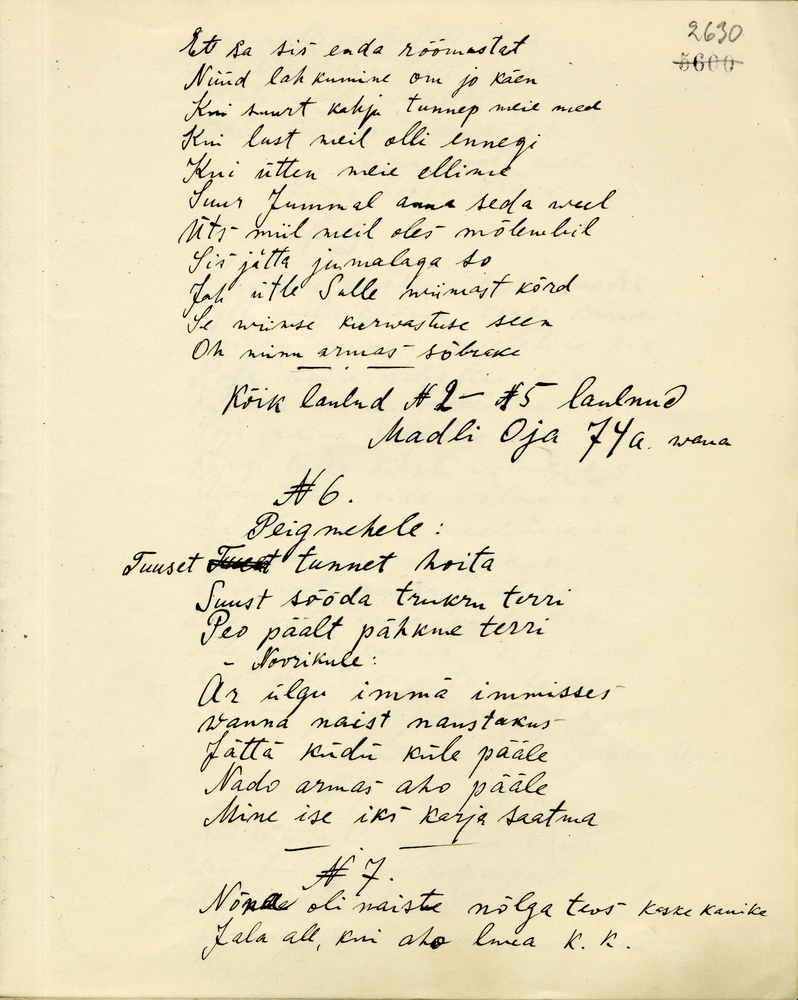 2630
5600
Et sa sis enda rõõmustat
Nüüd lahkumine om jo käen
Kui suurt kahju tunnep meie med
Kui lust meil olli ennegi
Kui ütten meie ellime
Suur Jummal anna seda weel
Üts miil meil oles mõlembil
Sis jätta jumalaga so
Jah ütle Sulle wiimast kõrd
Se wiimse kurwastuse seen
Oh minu armas sõbrake
Kõik laulud № 2 – № 5 laulnud
Madli Oja 74 a. wana
№ 6.
Peigmehele:
Tuuset tunnet hoita
Suust sööda trukru terri
Peo päält pähkme terri
- Noorikule:
Ar ülgu immä immisses
wanna naist naustakus
Jättä küdü küle pääle
Nado armas aho pääle
Mine ise iks karja saatma
№ 7.
oli naiste nõlga teos kaske kanike
Jala all, kui aho luua k. k.